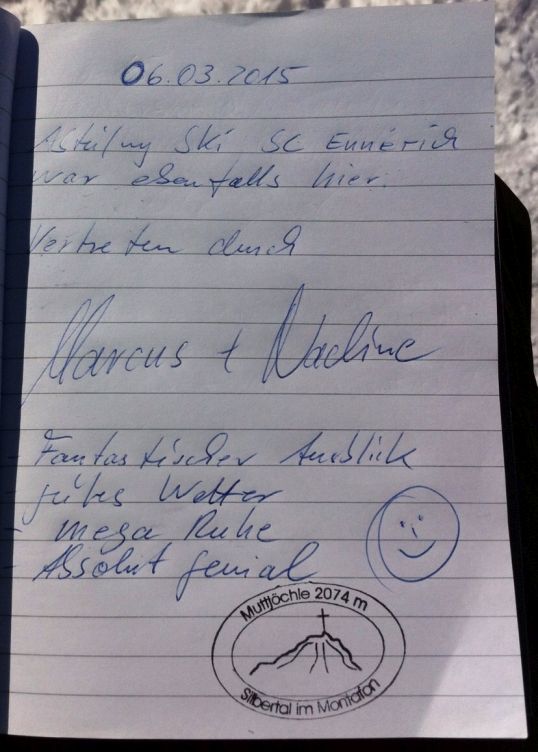 06.03.2015
Ski SC Ennerich
war ebenfalls hier.
Vertreten durch
Marcus + Nadine
- Fantastischer Ausblick
- gutes Wetter
- mega Ruhe
- Absolut genial
Muttjöchle 2074 m
Silbertal im Montafon